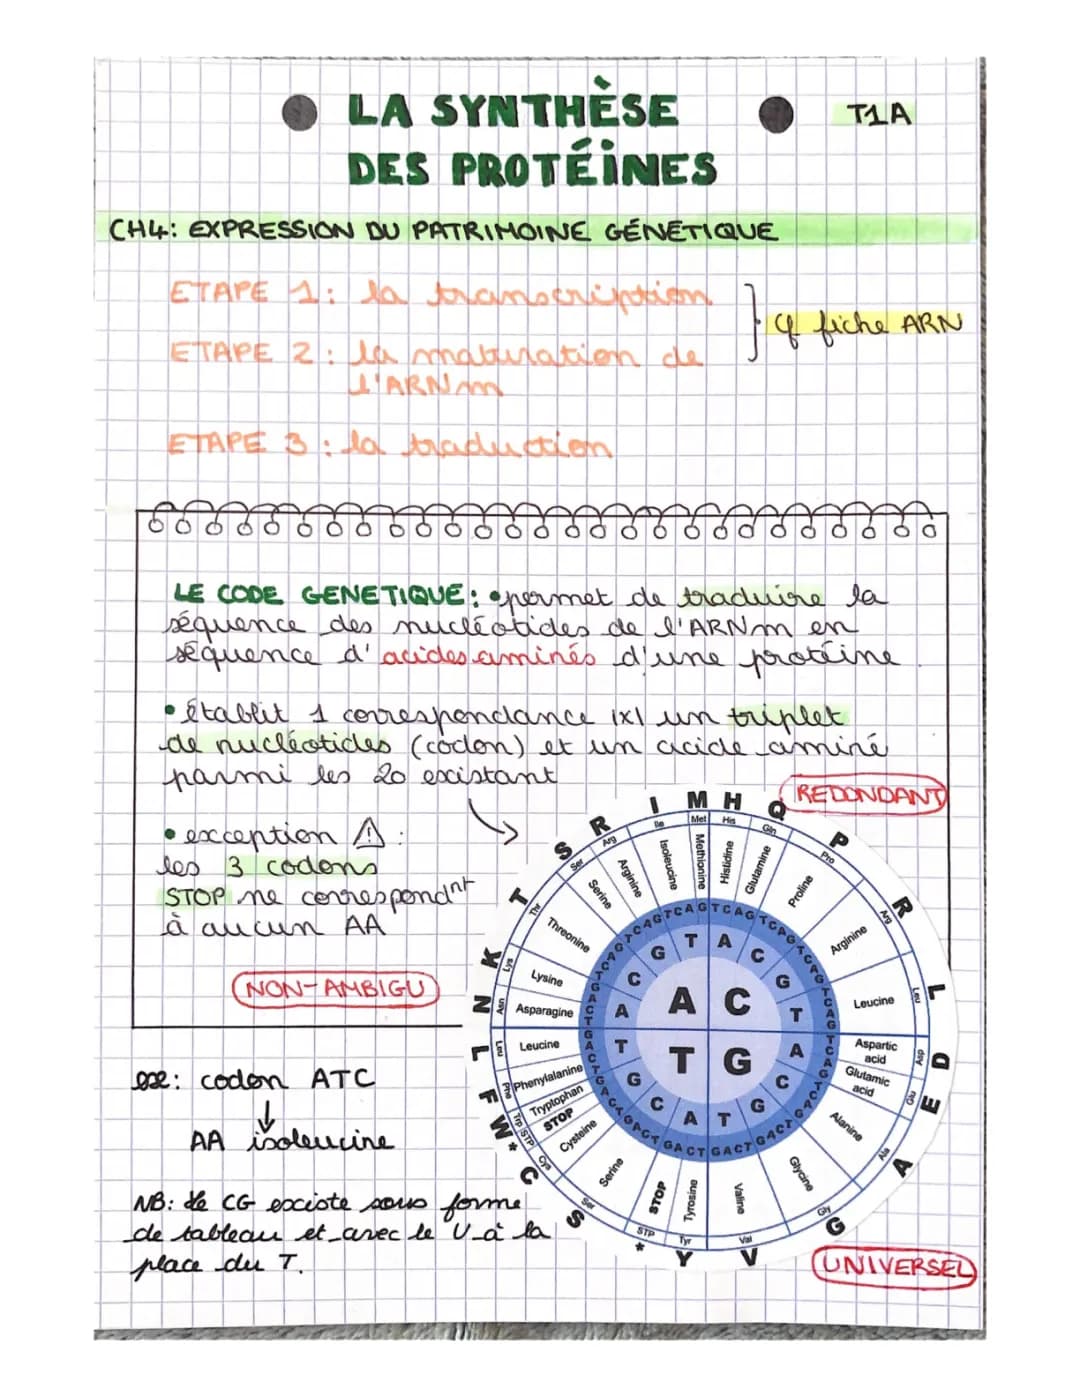 LA SYNTHÈSE
DES PROTÉINES
T1A
CH4: EXPRESSION DU PATRIMOINE GÉNÉTIQUE
ETAPE 1: la transcription
ETAPE 2: la maturation de
l'ARNm
cf fiche ARN
ETAPE 3: la traduction
LE CODE GENETIQUE: •permet de traduire la
séquence des nucléotides de l'ARNm en
séquence d'acides aminés d'une protéine
•établit 1 correspondance |x| un triplet
de nucléotides (codon) et un acide aminé
parmi les 20 existant
REDONDANT
•exception ⚠ :
les 3 codons
STOP ne correspondnt
à aucun AA
NON-AMBIGU
ex: codon ATC
↓
AA isoleucine
NB: Le CG existe sous forme
de tableau et avec le U à la
place du T.
UNIVERSEL
I M H Q P R L D E A G V Y * S C * W F L N K T S R
Ile Met His Gln Pro Arg Leu Asp Glu Ala Gly Val Tyr STP Ser Cys STP Trp Phe Leu Asn Lys Thr Ser Arg
Isoleucine
Methionine
Histidine
Glutamine
Proline
Arginine
Leucine
Aspartic
acid
Glutamic
acid
Alanine
Glycine
Valine
Tyrosine
STOP
Serine
Cysteine
STOP
Tryptophan
Phenylalanine
Leucine
Asparagine
Lysine
Threonine
Serine
Arginine
T A C G T
A C G T
A C
T G
A C G T
A C G T